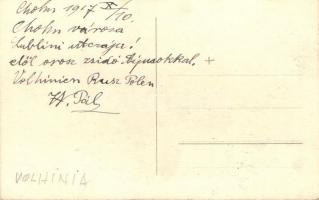 Cholm 1917 X/10.
Cholm városa
Lublini utczája!
elől orosz zsidó
Volhinien Russ. Polen
Pál
VOLHINIA